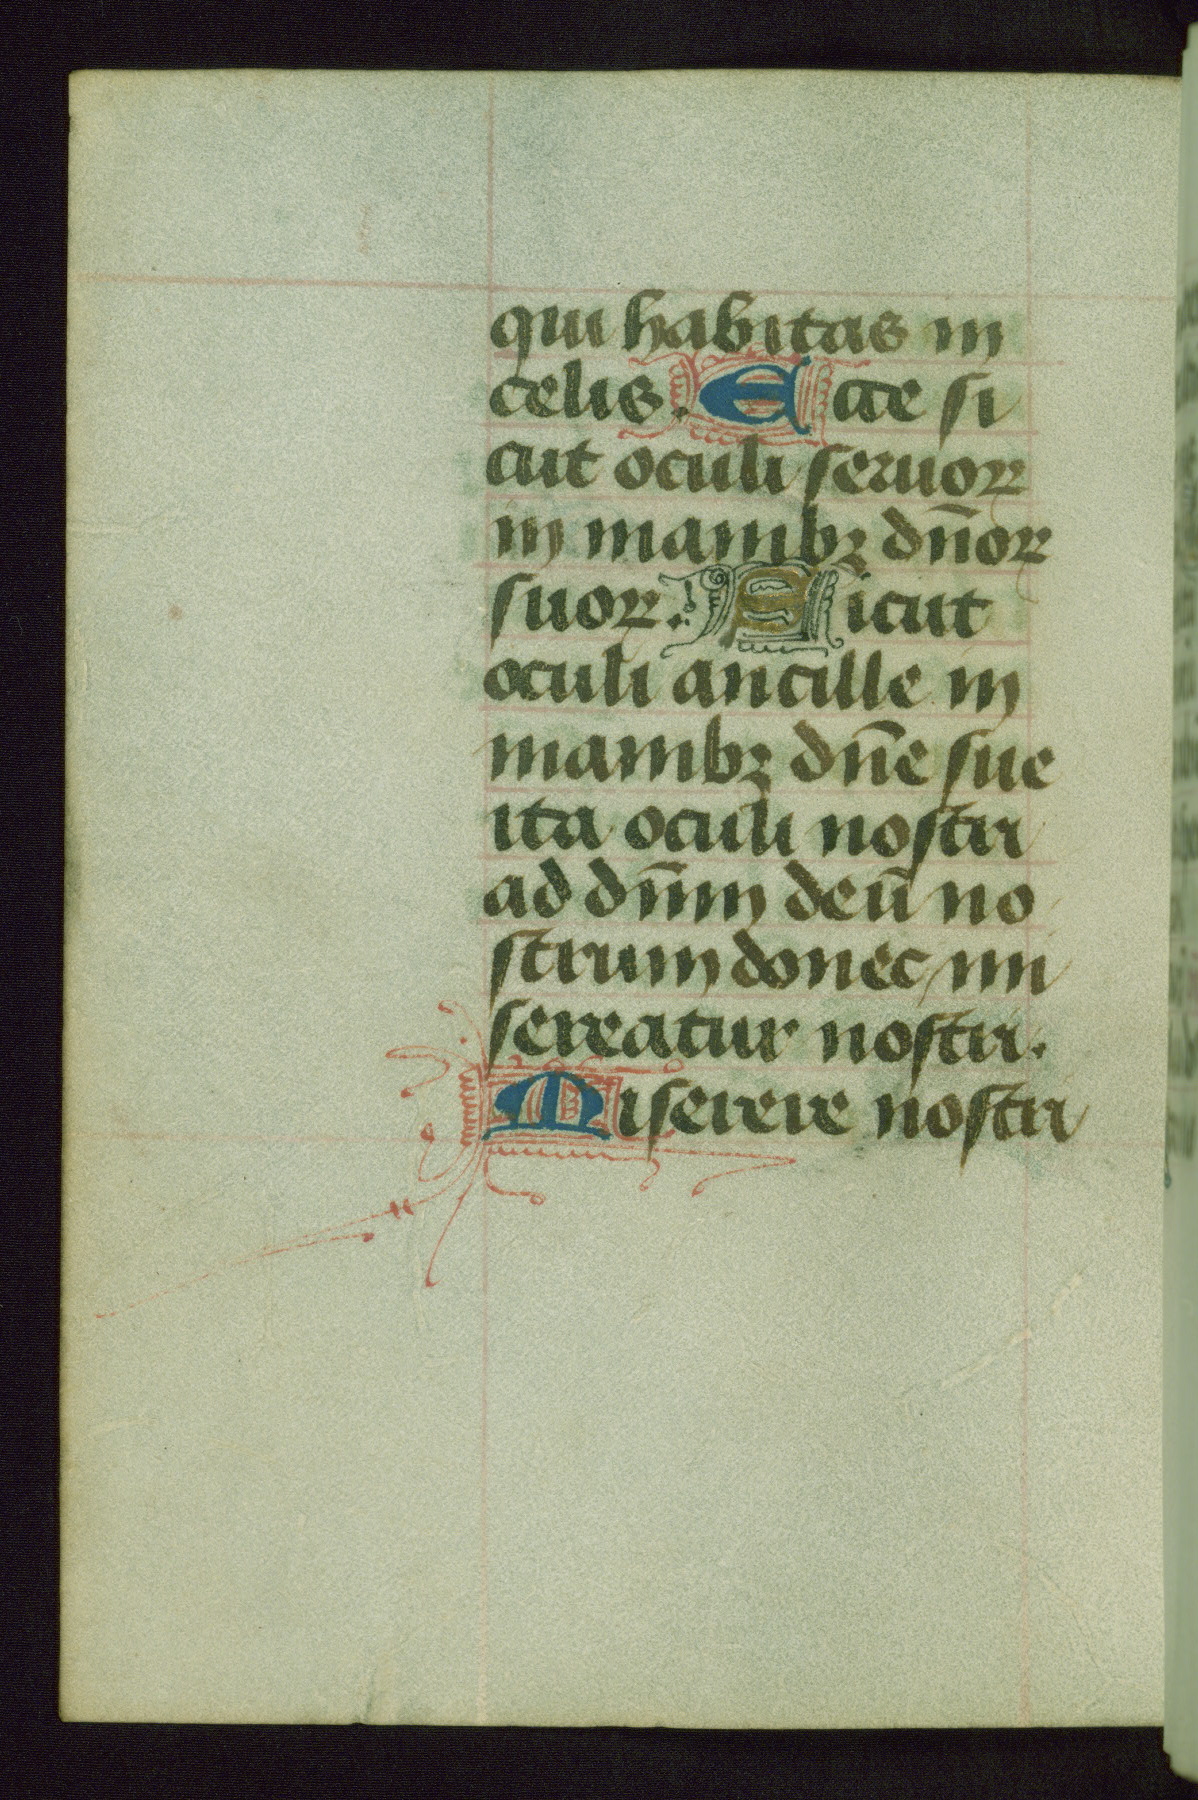 qui habitas in
celis. Ecce si
cut oculi seruoꝝ
in manibꝫ dn̄oꝝ
suoꝝ. Sicut
oculi ancille in
manibꝫ dn̄e sue
ita oculi nostri
ad dn̄m deū no
strum donec mi
sereatur nostri.
Miserere nostri